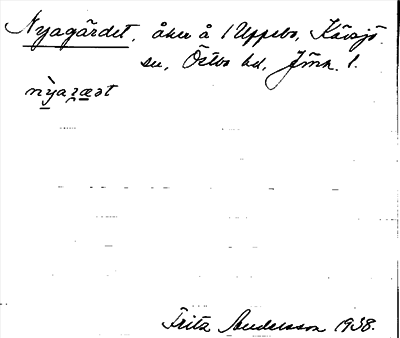 Nyagärdet, åker å 1 Uppebo, Kävsjö
sn, Östbo hd, Jönk. l.
nỳaʓæət
Fritz Andersson 1938.